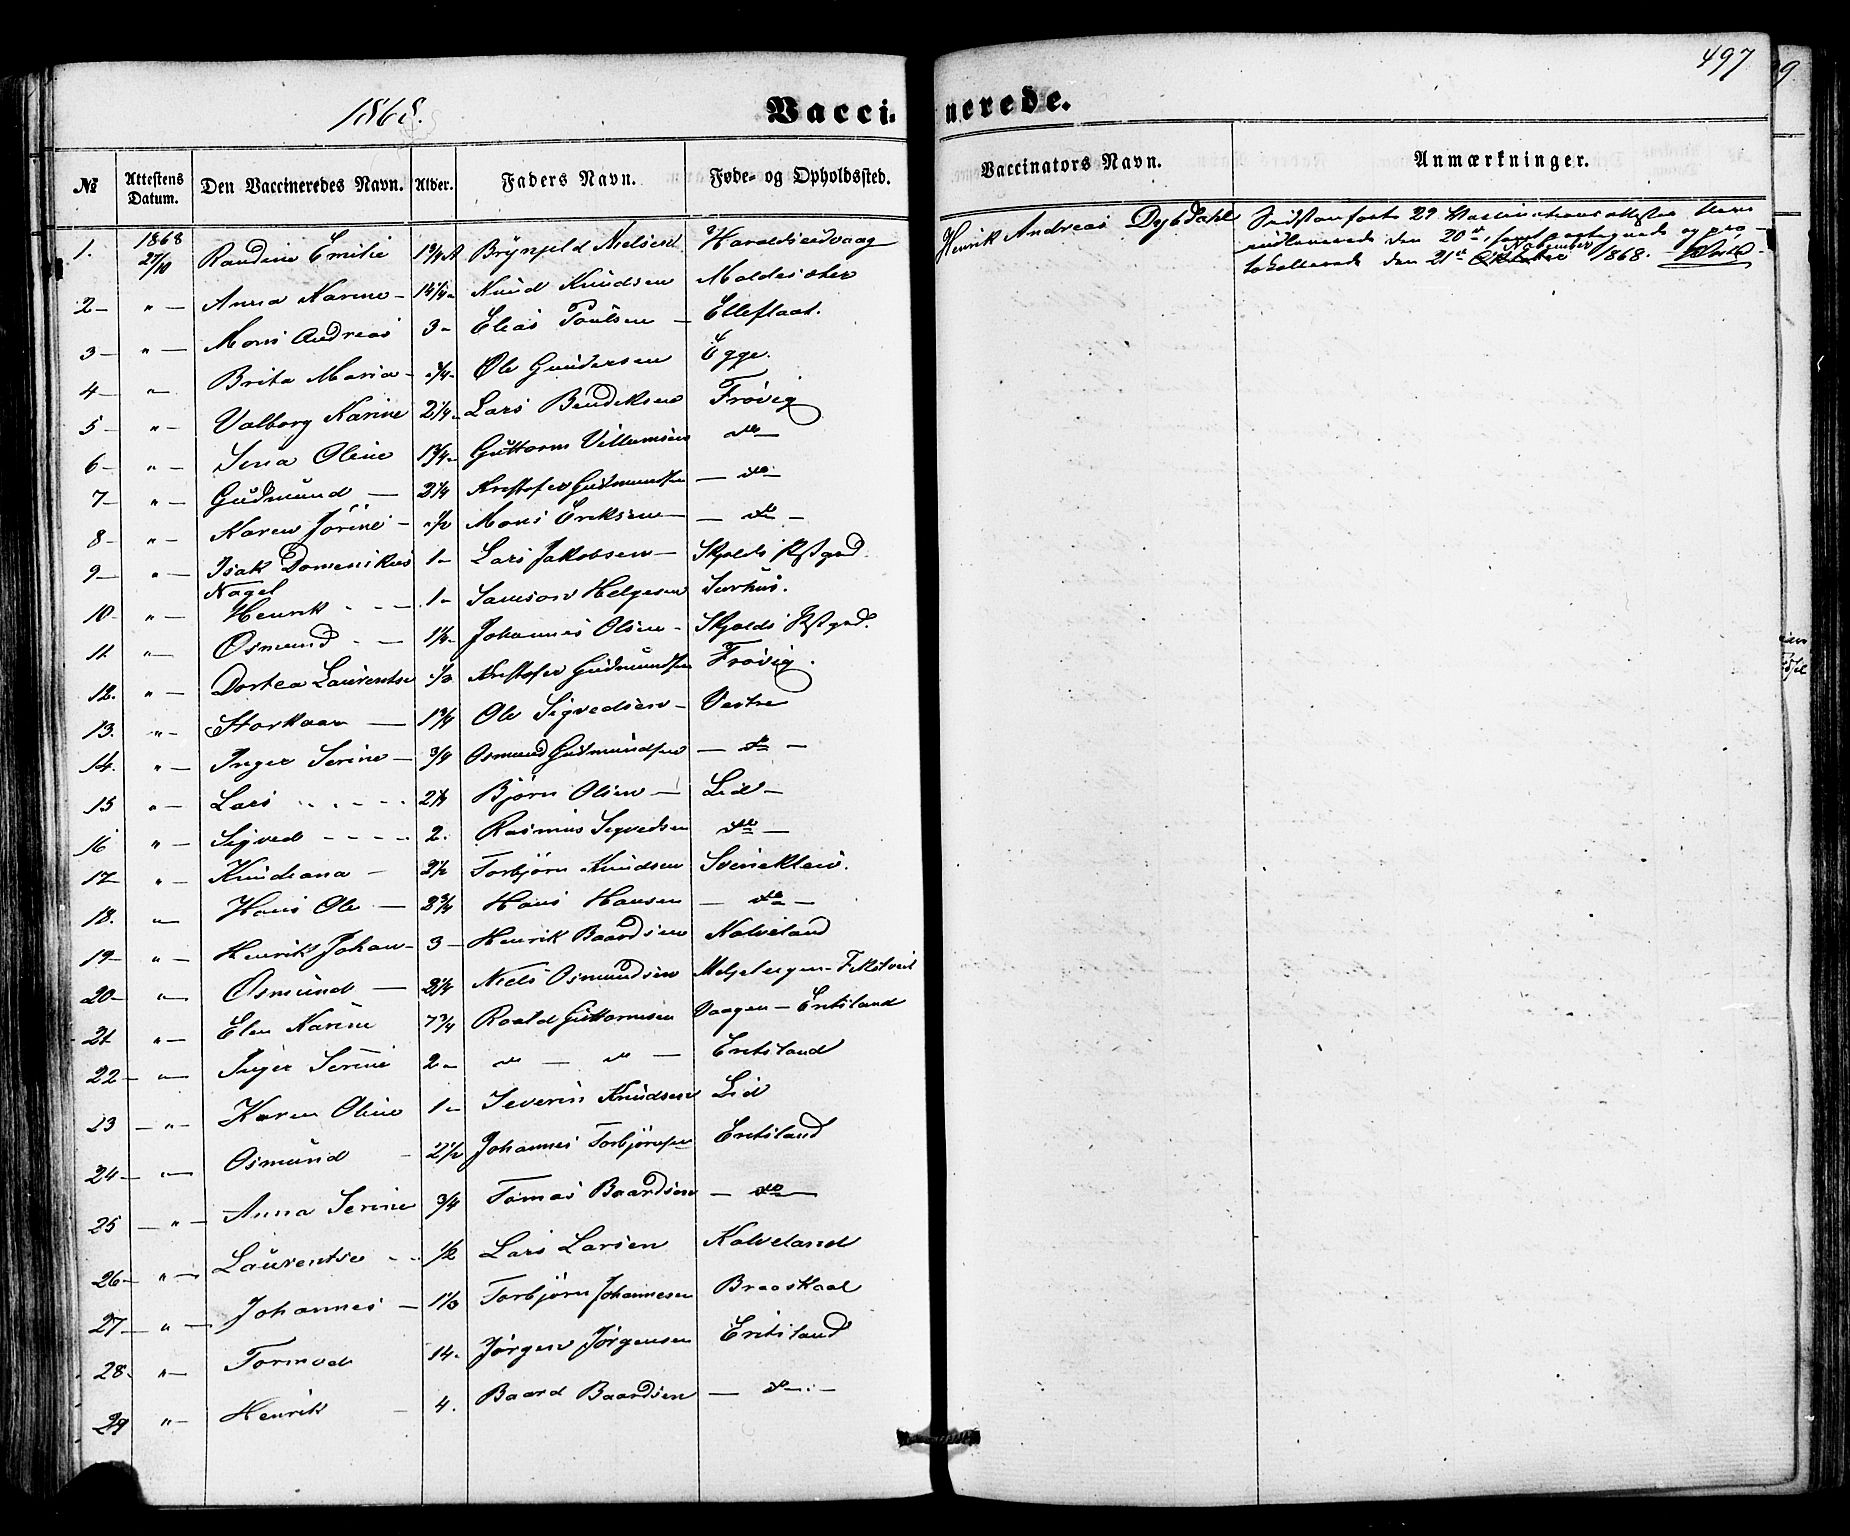 497
1868.
Vaccinerede.
№ Attestens Datum. Den Vaccineredes Navn. Alder. Faders Navn. Føde- og Opholdssted. Vaccinators Navn. Anmærkninger.
1. 1868 27/10 Randine Emilie 1 3/4 A Brynjeld Nielsen Haroldseidvaag Henrik Andreas Dybdahl
29 Vaccinationsattester
indleverede den 20de, samt modtagnede og pro-
tokollerede den 21de Oktober November 1868.
2 — " — Anna Karine — 14 1/4 " Knud Knudsen Moldesæter
3 — " — Mons Andreas 3 " Elias Poulsen — Elleflaat.
4 — " Brita Maria — 3/4 " Ole Gundersen Egge.
5 — " — Valborg Karine 2 1/4 " Lars Bendiksen Frøvig
6 — " — Sena Oline 1 3/4 " Guttorm Villumsen do —
7 — " — Gudmund — 2 1/4 Kristofer Gudmundsen — do —
8 — " — Karen Jørine — 1/2 Mons Eriksen — — do —
9 — " — Isak Domenikus Nagel 1 " Lars Jakobsen — Skjolds Præstgrd.
10 — " — Henrik - - — 1 " Samson Helgesen Surhus.
11 " — Osmund - — 1 1/2 " Johannes Olsen - Skjolds Præstgrd.
12. " — Dortea Laurentse 1/3 Kristofer Gudmundsen Frøvig.
13. " — Storkaar — 1 3/4 Ole Sigvedsen — Vestre
14. " — Inger Serine — 3/4 Osmund Gudmundsen — do —
15 " — Lars - - - - 2 1/4 Bjørn Olsen — Lid —
16 " — Sigved - - - - 2. Rasmus Sigvedsen do —
17 " — Knudeana — 2 1/2 Torbjørn Knudsen Sveinekleiv.
18. " Hans Ole — 2 3/4 Hans Hansen — do —
19 — " — Henrik Johan — 3 — Henrik Baardsen Kalveland
20 — " — Osmund — 2 1/4 Niels Osmundsen Meljebergen - Fikstveit
21 " — Elen Karine 7 3/4 Roald Guttormsen Vaagen — Eritsland
22 — " — Inger Serine 2 " " — " — Eritsland
23 — " — Karen Oline 1 " Severin Knudsen Lid
24 — " — Osmund - 2 1/2 Johannes Torbjørnsen Eritsland
25 — " — Anna Serine 3/4 Tomas Baardsen — do —
26 — " — Laurentse - - 1/2 Lars Larsen Kalveland
27 — " — Johannes — 1 1/3 Torbjørn Johannesen Braaskaal
28. " — Tormod 14. Jørgen Jørgensen Eritsland
29 " — Henrik - 4. Baard Baardsen — do —